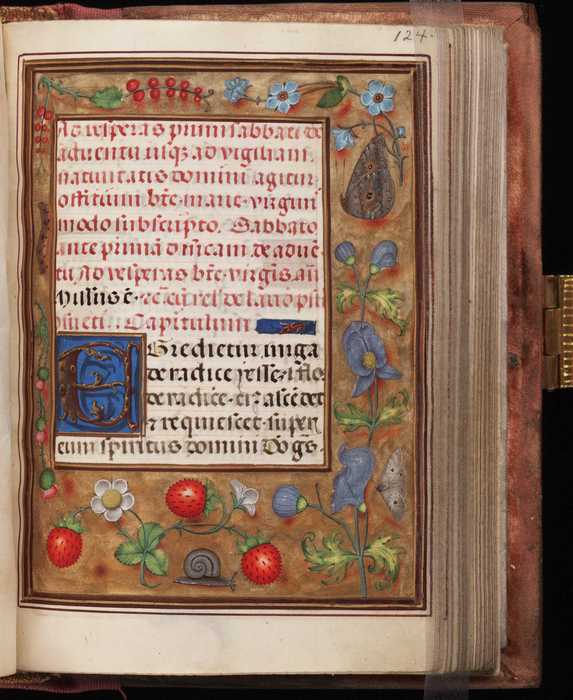 124.
Ad vesperas primi sabbati de
adventu usq; ad vigiliam
nativitatis domini agitur
offitium bte. marie. virgini
modo subscripto. Sabbato
ante primā dn̄icam de advē
tu Ad vesperas bte. virgis añ
Missus ē.
Capitulum
EGredietur virga
de radice yesse. & flos
de radice. eiꝰ ascēdet
& requiescet super
eum spiritus domini Do gr̄s.